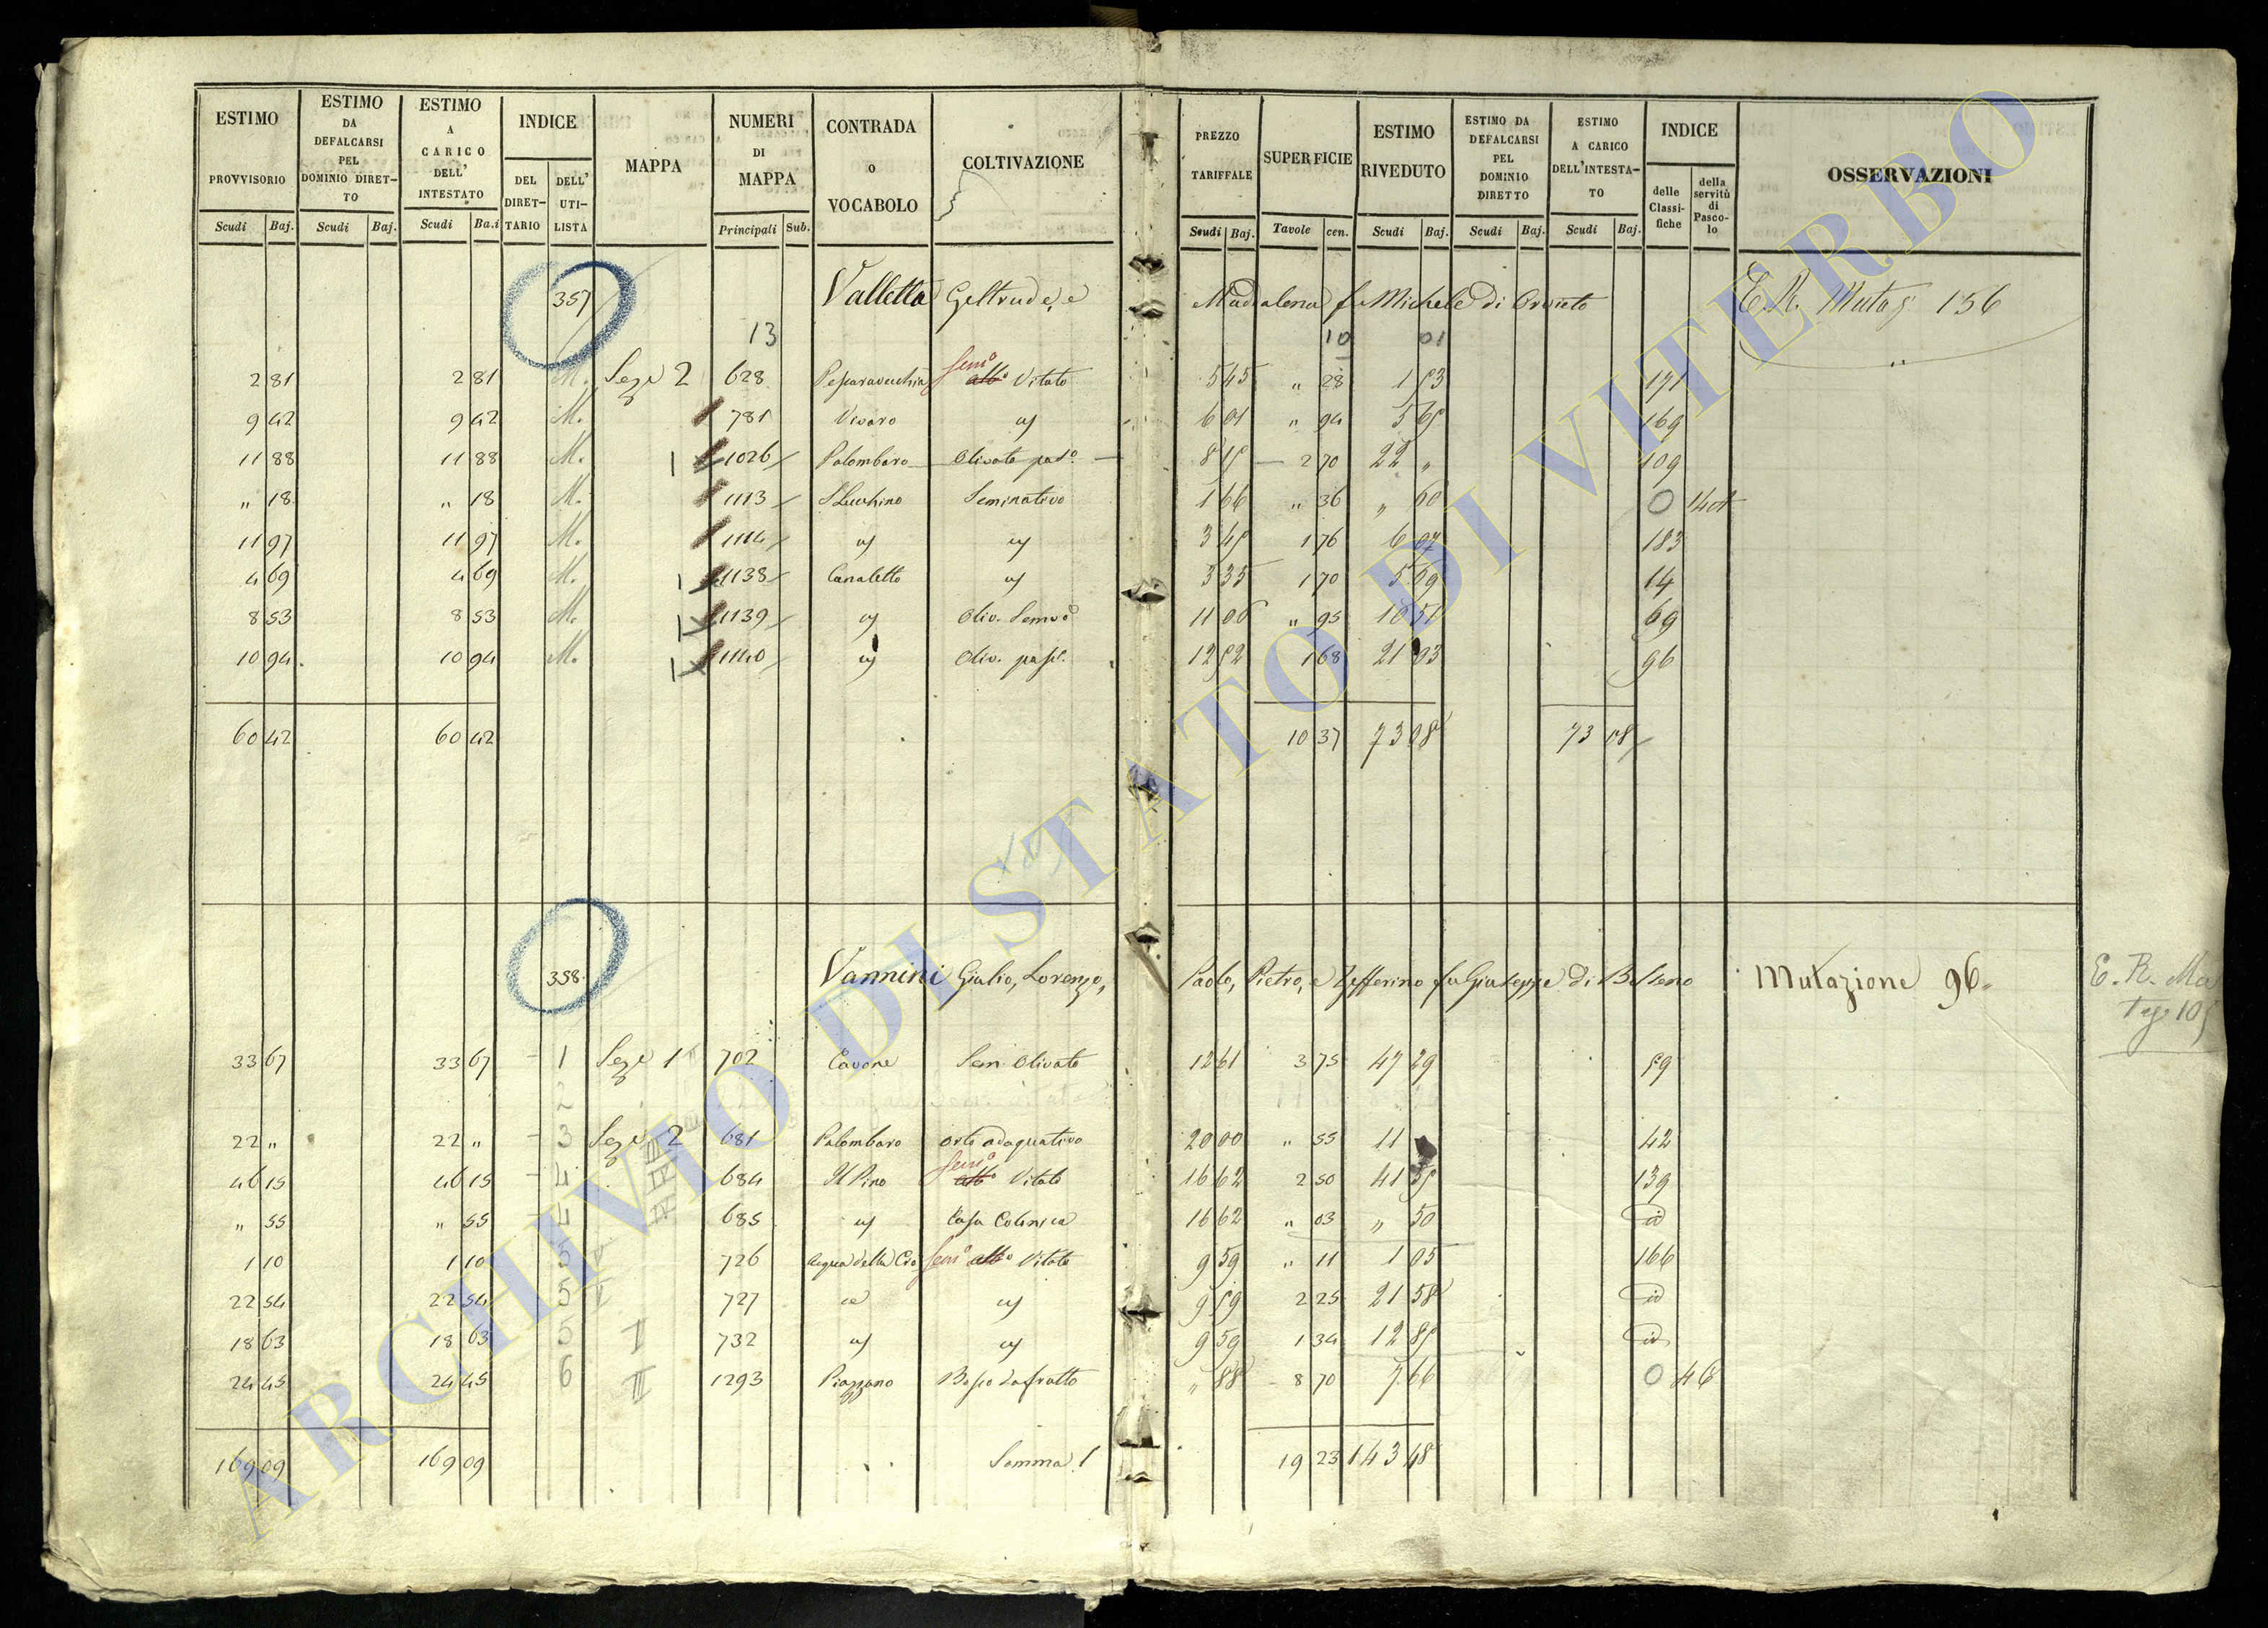 ESTIMO PROVVISORIO Scudi Baj.
ESTIMO DA DEFALCARSI PEL DOMINIO DIRET-TO Scudi Baj.
ESTIMO A CARICO DELL' INTESTATO Scudi Baj
INDICE DEL DIRET-TARIO DELL' UTI-LISTA
MAPPA
NUMERI DI MAPPA Principali Sub.
CONTRADA O VOCABOLO
COLTIVAZIONE
PREZZO TARIFFALE Scudi Baj.
SUPERFICIE Tavole cen.
ESTIMO RIVEDUTO Scudi Baj.
ESTIMO DA DEFALCARSI PEL DOMINIO DIRETTO Scudi Baj.
ESTIMO A CARICO DELL'INTESTA-TO Scudi Baj.
INDICE delle Classi-fiche della servitù di Pasco-lo
OSSERVAZIONI
357 Valletta Geltrude, e Madalena fu Michele di Orvieto E. R. Mutaz 156
13 10 01
2 81 2 81 M. Seze 2 628 Pesaravecchia Semo Vitato 5 45 " 28 1 53 171
9 42 9 42 M. 781 Vivaro id 6 01 " 94 5 65 169
11 88 11 88 M. 1 1026 Palombaro Olivato paso. 8 15 2 70 22 " 109
" 18 " 18 M. 1113 Seminativo 1 66 " 36 " 60 0
11 97 11 97 M. 1114 id id 3 45 1 76 6 07 183
4 69 4 69 M. 1 1138 Canaletto id 3 35 1 70 5 69 14
8 53 8 53 M. 1 1139 id Oliv. Semvo 11 06 " 95 10 51 69
10 94 10 94 M. 1 1140 id Oliv. pasc. 12 52 1 68 21 03 96
60 42 60 42 10 37 73 08 73 08
358 Vannini Giulio, Lorenzo, Paolo, Pietro, e Zefferino fu Giuseppe di Bolseno Mutazione 96 E. R. Mu
Tge 105
33 67 33 67 1 Seze 1 702 Cavone Sem Olivato 12 61 3 75 47 29 59
2
22 " 22 " 3 Seze 2 681 Palombaro Orto adaquativo 20 00 " 55 11 42
46 15 46 15 4 684 Il Pino Semo Vitato 16 62 2 50 41 55 139
" 55 " 55 4 685 id Casa Colonica 16 62 " 03 " 50 id
1 10 1 10 5 V 726 Acqua della Cro Semo Vitato 9 59 " 11 1 05 166
22 54 22 54 5 V 727 id id 9 59 2 25 21 58 id
18 63 18 63 5 V 732 id id 9 59 1 34 12 85 id
24 45 24 45 6 III 1293 Piazzano Bosco da frutto " 88 8 70 7 66 0 46
169 09 169 09 Somma 19 23 143 48
ARCHIVIO DI STATO DI VITERBO